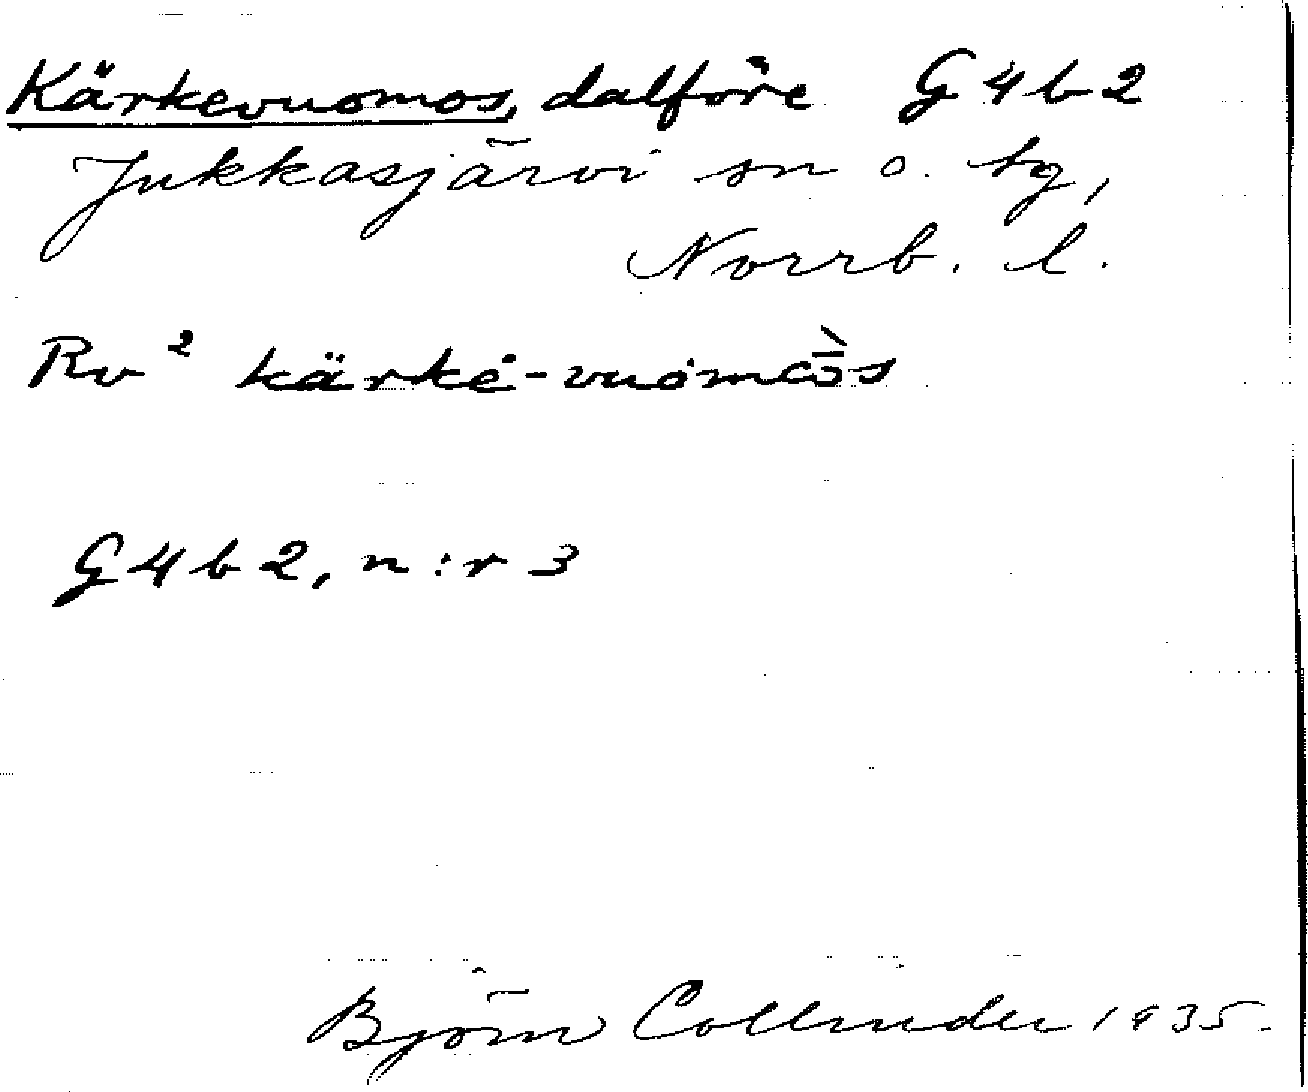 Kärkevuomos, dalföre G4b2
Jukkasjärvi sn o. tg,
Norrb. l.
Rv² kärke-vuomos
G4b2, n:r 3
Björn Collinder 1935.